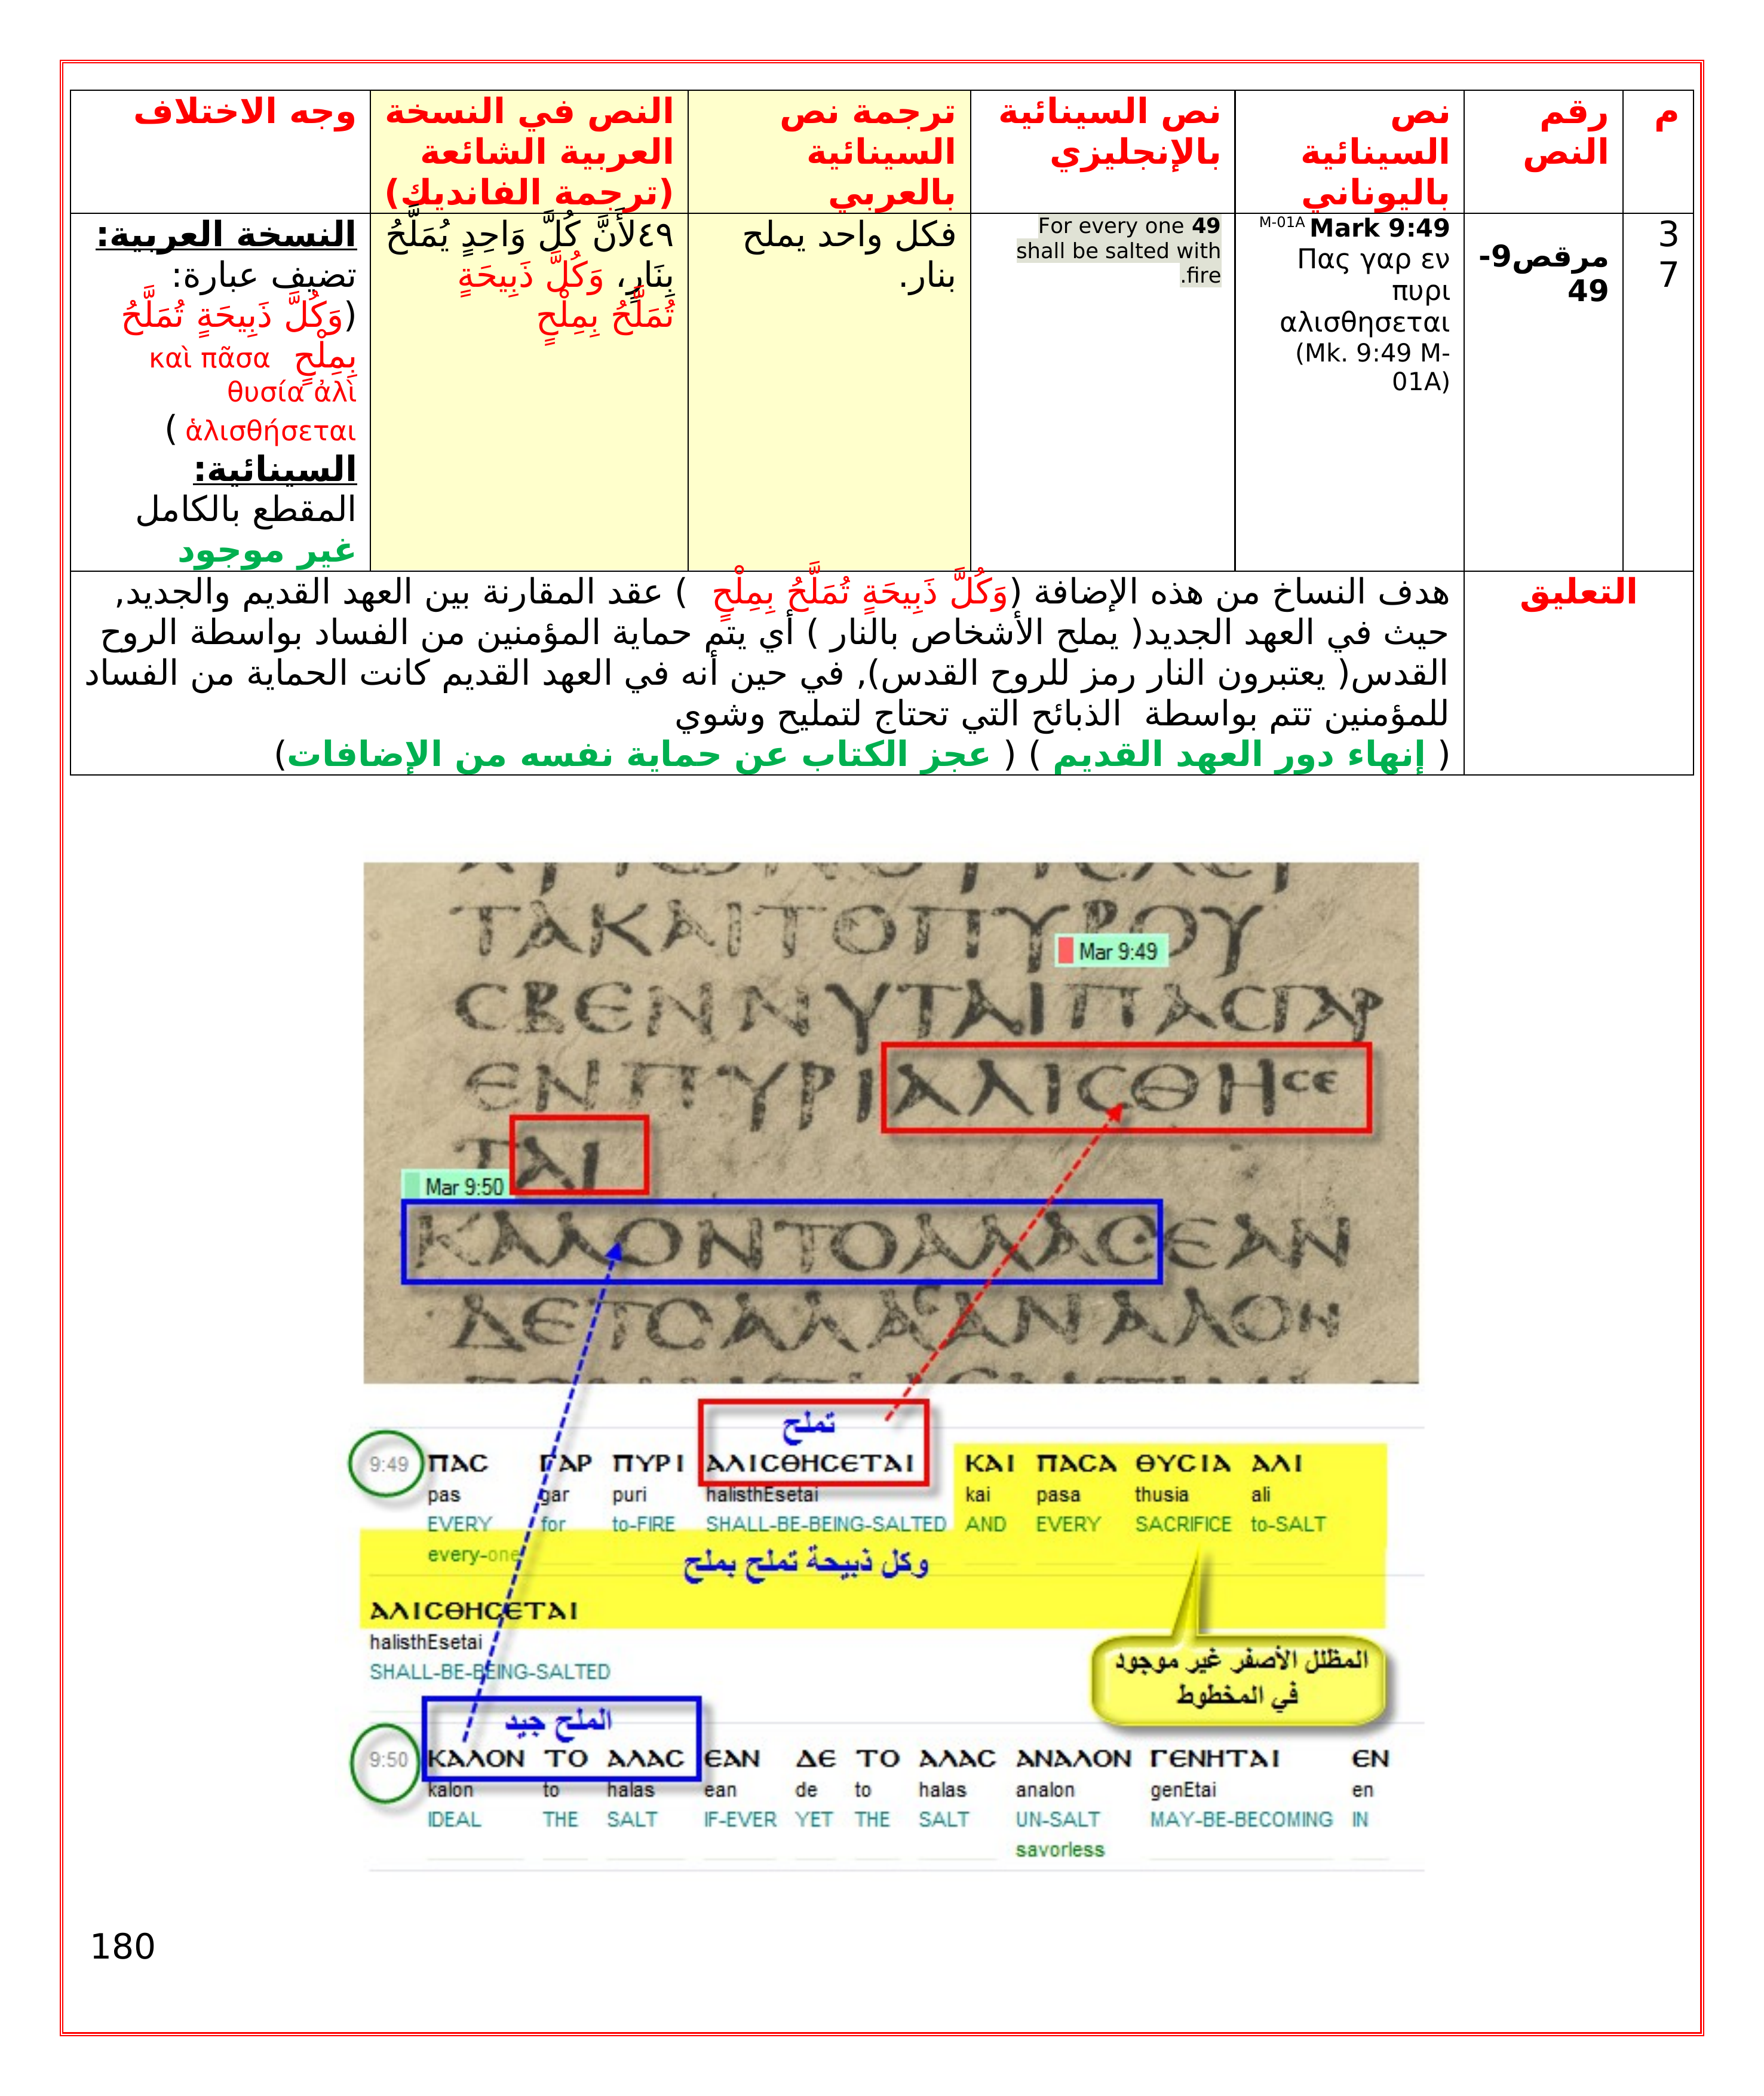 م
رقم
النص
نص
السينائية
باليوناني
نص السينائية
بالإنجليزي
ترجمة نص
السينائية
بالعربي
النص في النسخة
العربية الشائعة
(ترجمة الفانديك)
وجه الاختلاف
3
7
مرقص9-
49
M-01A Mark 9:49
Πας γαρ εν
πυρι
αλισθησεται
(Mk. 9:49 M-
01A)
For every one 49
shall be salted with
fire.
فكل واحد يملح
بنار.
٤٩لأَنَّ كُلَّ وَاحِدٍ يُمَلَّحُ
بِنَارٍ، وَكُلَّ ذَبِيحَةٍ
تُمَلَّحُ بِمِلْحٍ
النسخة العربية:
تضيف عبارة:
(وَكُلَّ ذَبِيحَةٍ تُمَلَّحُ
بِمِلْحٍ καὶ πᾶσα
θυσία ἁλὶ
ἁλισθήσεται )
السينائية:
المقطع بالكامل
غير موجود
التعليق
هدف النساخ من هذه الإضافة (وَكُلَّ ذَبِيحَةٍ تُمَلَّحُ بِمِلْحٍ ) عقد المقارنة بين العهد القديم والجديد,
حيث في العهد الجديد( يملح الأشخاص بالنار ) أي يتم حماية المؤمنين من الفساد بواسطة الروح
القدس( يعتبرون النار رمز للروح القدس), في حين أنه في العهد القديم كانت الحماية من الفساد
للمؤمنين تتم بواسطة الذبائح التي تحتاج لتمليح وشوي
( إنهاء دور العهد القديم ) ( عجز الكتاب عن حماية نفسه من الإضافات)
ΤΑΚΑΙΤΟΠΥΡΟΥ
Mar 9:49
ϹΒΕΝΝΥΤΑΙΠΑϹΓΑΡ
ΕΝΠΥΡΙΑΛΙϹΘΗϹΕ
ΤΑΙ
Mar 9:50
ΚΑΛΟΝΤΟΑΛΑϹΕΑΝ
ΔΕΤΟΑΛΑϹΑΝΑΛΟΝ
تملح
9:49 ΠΑϹ ΓΑΡ ΠΥΡΙ ΑΛΙϹΘΗϹΕΤΑΙ ΚΑΙ ΠΑϹΑ ΘΥϹΙΑ ΑΛΙ
pas gar puri halisthEsetai kai pasa thusia ali
EVERY for to-FIRE SHALL-BE-BEING-SALTED AND EVERY SACRIFICE to-SALT
every-one
وكل ذبيحة تملح بملح
ΑΛΙϹΘΗϹΕΤΑΙ
halisthEsetai
SHALL-BE-BEING-SALTED
المظلل الأصفر غير موجود
في المخطوط
الملح جيد
9:50 ΚΑΛΟΝ ΤΟ ΑΛΑϹ ΕΑΝ ΔΕ ΤΟ ΑΛΑϹ ΑΝΑΛΟΝ ΓΕΝΗΤΑΙ ΕΝ
kalon to halas ean de to halas analon genEtai en
IDEAL THE SALT IF-EVER YET THE SALT UN-SALT MAY-BE-BECOMING IN
savorless
180